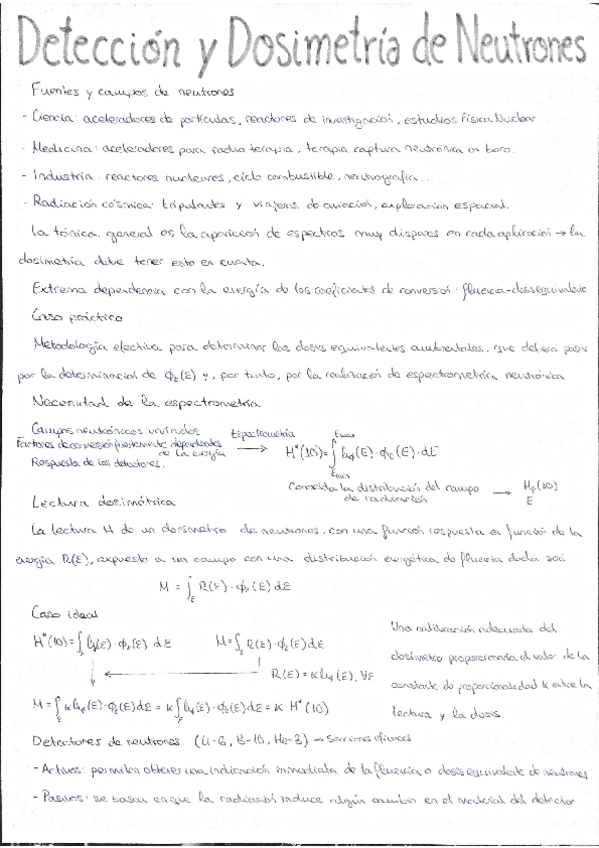 Detección y Dosimetría de Neutrones
Fuentes y campos de neutrones
- Ciencia: aceleradores de partículas, reactores de investigación, estudios Física Nuclear
- Medicina: aceleradores para radio terapia, terapia captura neutrónica en boro.
- Industria: reactores nucleares, ciclo combustible, neutrografía...
- Radiación cósmica: tripulantes y viajeros de aviación, exploración espacial.
La tónica general es la aparición de espectros muy dispares en cada aplicación → la
dosimetría debe tener esto en cuenta.
Extrema dependencia con la energía de los coeficientes de conversión fluencia-dosis equivalente
Caso práctico
Metodología efectiva para determinar las dosis equivalentes ambientales, que deberá pasar
por la determinación de ϕE(E) y, por tanto, por la realización de espectrometría neutrónica
Necesidad de la espectrometría
Campos neutrónicos variados
Factores de conversión fuertemente dependientes de la energía
Respuesta de los detectores.
Espectrometría → H*(10) = ∫ hϕ(E)·ϕE(E)·dE
Emax
Emin
Conocida la distribución del campo de radiación → Hp(10) E
Lectura dosimétrica
La lectura M de un dosímetro de neutrones, con una función respuesta en función de la
energía R(E), expuesto a un campo con una distribución energética de fluencia dada será:
M = ∫E R(E)·ϕE(E) dE
Caso ideal
H*(10) = ∫E hϕ(E)·ϕE(E) dE M = ∫E R(E)·ϕE(E) dE
R(E) = k hϕ(E), ∀E
M = ∫E k hϕ(E)·ϕE(E) dE = k ∫E hϕ(E)·ϕE(E) dE = k · H*(10)
Una calibración adecuada del
dosímetro proporcionaría el valor de la
constante de proporcionalidad k entre la
lectura y la dosis.
Detectores de neutrones (Li-6, B-10, He-3) → Secciones eficaces
- Activos: permiten obtener una indicación inmediata de la fluencia o dosis equivalente de neutrones
- Pasivos: se basan en que la radiación induce algún cambio en el material del detector